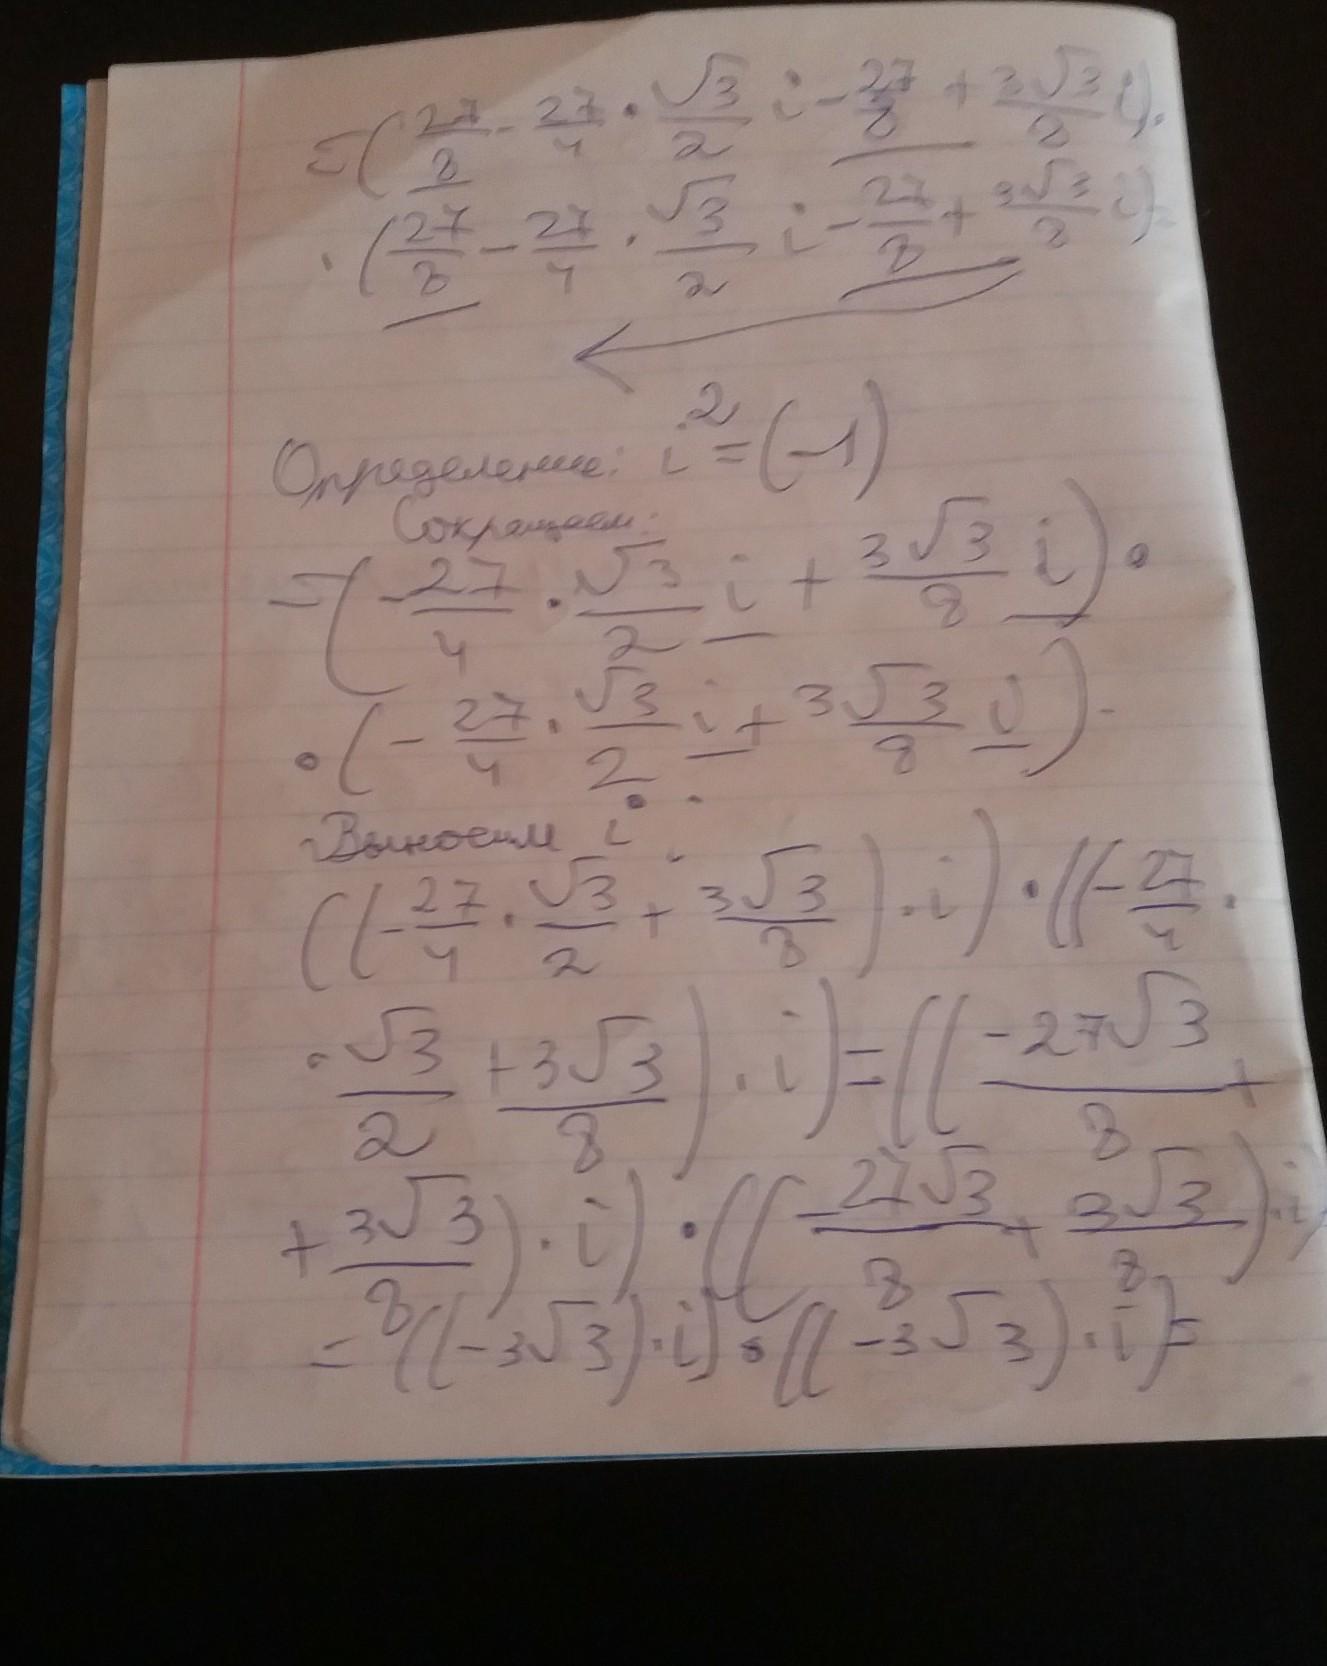 =(27/8 - 27/4 · √3/2 i - 27/8 + 3√3/8 i)·
·(27/8 - 27/4 · √3/2 i - 27/8 + 3√3/8 i)=
Определение: i²=(-1)
Сокращаем:
=(-27/4 · √3/2 i + 3√3/8 i)·
·(-27/4 · √3/2 i + 3√3/8 i)
Выносим i:
((-27/4 · √3/2 + 3√3/8)·i)·((-27/4·
·√3/2 + 3√3/8)·i)=((-27√3/8 +
+3√3/8)·i)·((-27√3/8 + 3√3/8)·i)
=((-3√3)·i)·((-3√3)·i)=